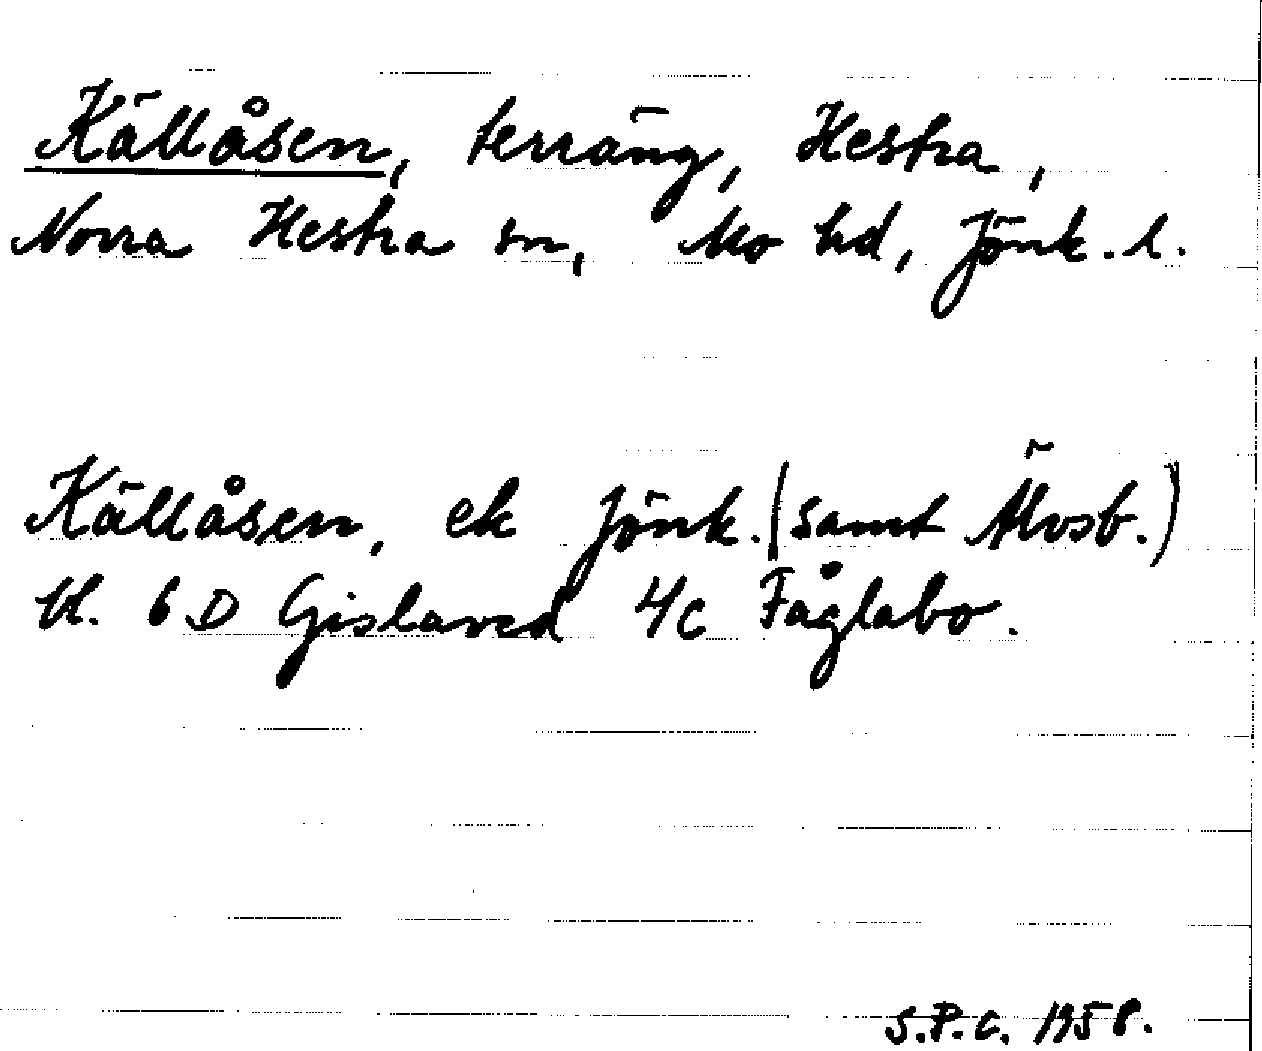 Källåsen, terräng, Hestra,
Norra Hestra sn, Mo hd, Jönk. l.
Källåsen, ek Jönk. (samt Älvsb.)
bl. 6 D Gislaved 4c Fåglabo.
S.P.C. 1958.